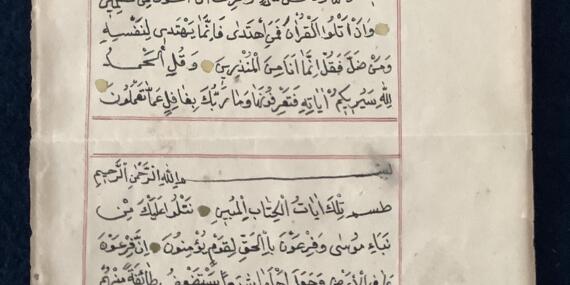 وَاَنْ اَتْلُوَا الْقُرْاٰنَ فَمَنِ اهْتَدٰى فَاِنَّمَا يَهْتَدٖى لِنَفْسِهٖ
وَمَنْ ضَلَّ فَقُلْ اِنَّمَا اَنَا مِنَ الْمُنْذِرٖينَ وَقُلِ الْحَمْدُ
لِلّٰهِ سَيُرٖيكُمْ اٰيَاتِهٖ فَتَعْرِفُونَهَا وَمَا رَبُّكَ بِغَافِلٍ عَمَّا تَعْمَلُونَ
بسم الله الرحمن الرحيم
طسم تِلْكَ اٰيَاتُ الْكِتَابِ الْمُبٖينِ نَتْلُوا عَلَيْكَ مِنْ
نَبَاءِ مُوسٰى وَفِرْعَوْنَ بِالْحَقِّ لِقَوْمٍ يُؤْمِنُونَ اِنَّ فِرْعَوْنَ